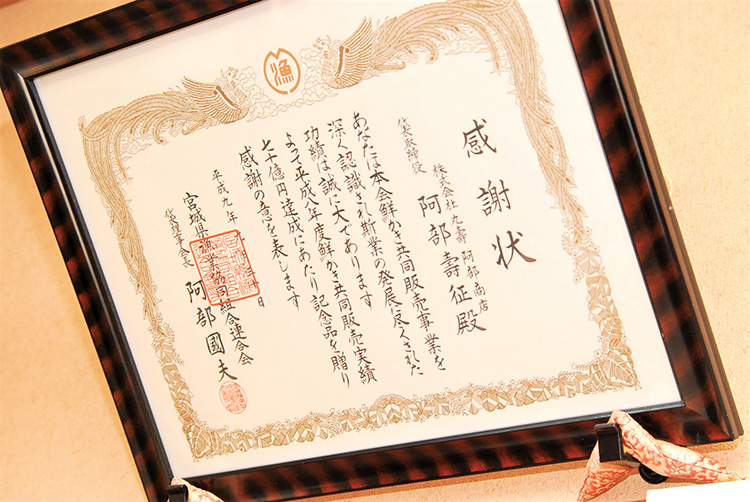 漁
感謝状
株式会社 丸壽 阿部商店
代表取締役 阿部壽征殿
あなたは本会鮮かき共同販売事業を
深く認識され斯業の発展に尽くされた
功績は誠に大であります
よって平成八年度鮮かき共同販売実績
七十億円達成にあたり記念品を贈り
感謝の意を表します
平成九年 日
宮城県漁業協同組合連合会
代表理事会長 阿部國夫